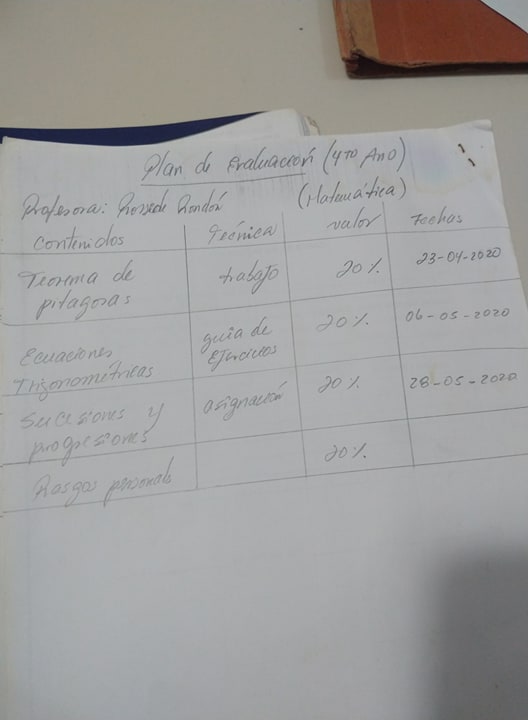 Plan de Evaluación (4TO AnO)
Profesora: Rondón (Matemática)
Contenidos Técnica valor Fechas
Teorema de pitagoras trabajo 20% 23-04-2020
Ecuaciones Trigonométricas guia de Ejercicios 20% 06-05-2020
Sucesiones y progresiones asignación 20% 28-05-2020
Rasgos personals 20%